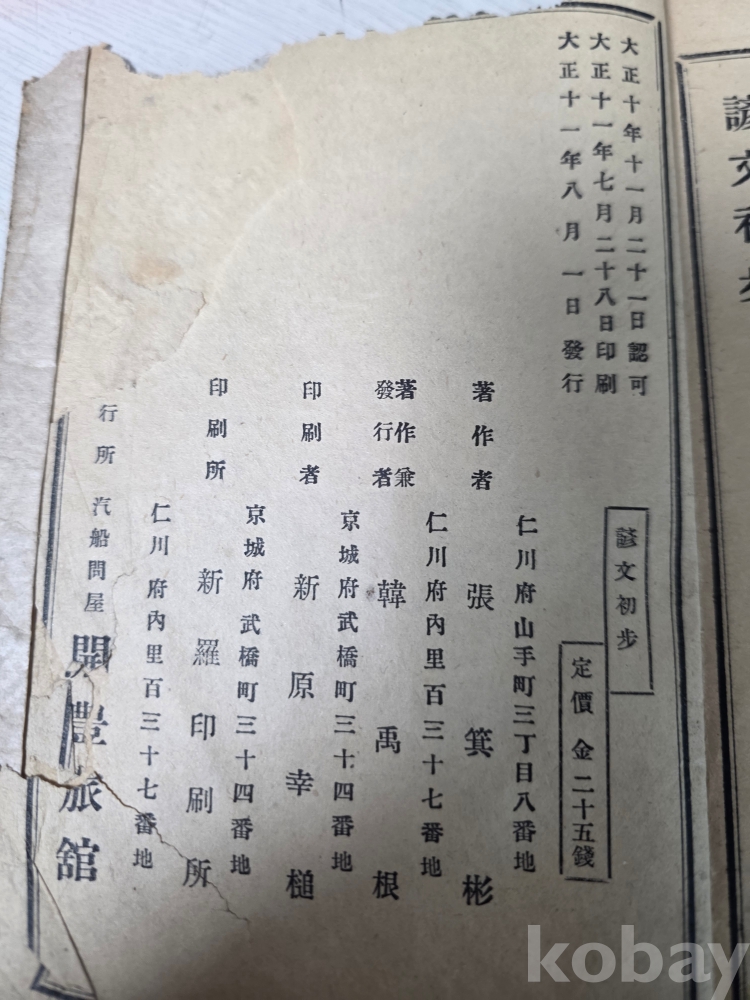 諺文初步
大正十年十一月二十一日認可
大正十一年七月二十八日印刷
大正十一年八月一日發行
諺文初步
定價金二十五錢
仁川府山手町三丁目八番地
著作者 張箕彬
仁川府內里百三十七番地
著作兼發行者 韓禹根
京城府武橋町三十四番地
印刷者 新原幸槌
京城府武橋町三十四番地
印刷所 新羅印刷所
仁川府內里百三十七番地
行所 汽船問屋 開豊旅舘
kobay